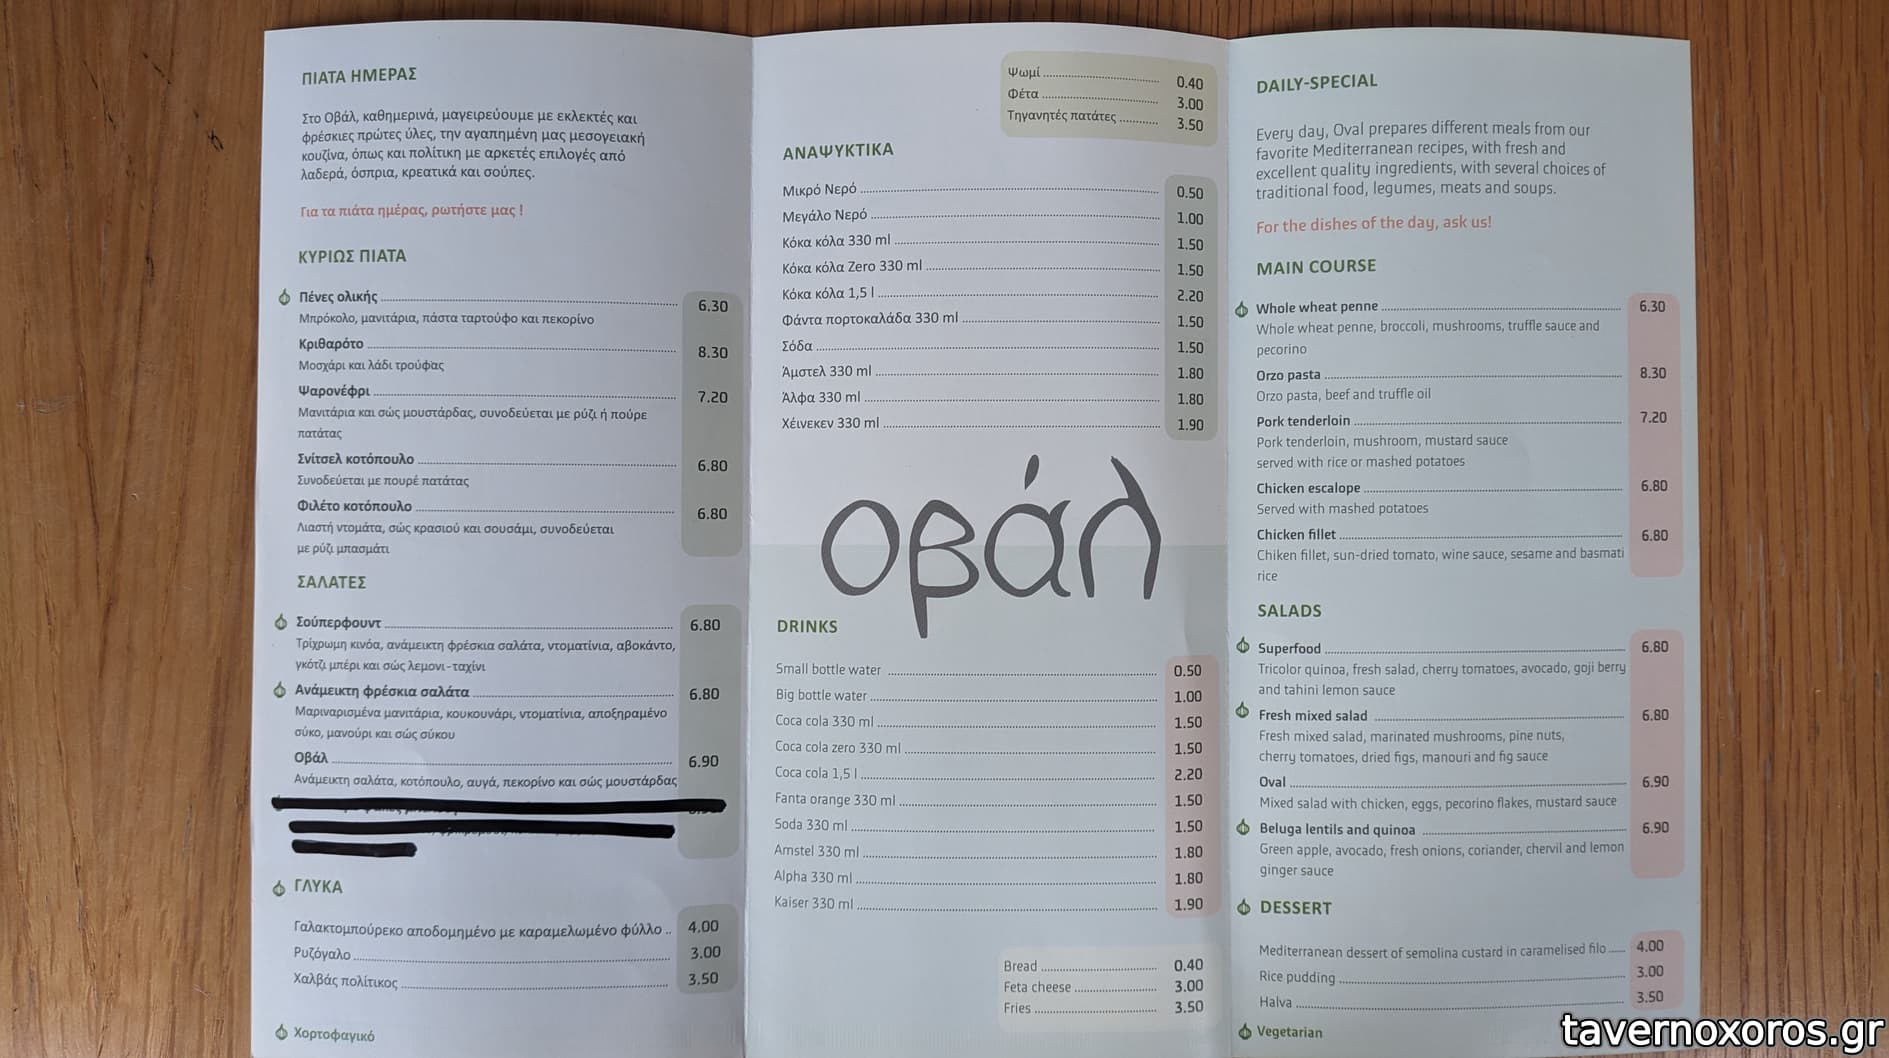 ΠΙΑΤΑ ΗΜΕΡΑΣ
Στο Οβάλ, καθημερινά, μαγειρεύουμε με εκλεκτές και
φρέσκιες πρώτες ύλες, την αγαπημένη μας μεσογειακή
κουζίνα, όπως και πολίτικη με αρκετές επιλογές από
λαδερά, όσπρια, κρεατικά και σούπες.
Για τα πιάτα ημέρας, ρωτήστε μας !
ΚΥΡΙΩΣ ΠΙΑΤΑ
Πένες ολικής 6.30
Μπρόκολο, μανιτάρια, πάστα ταρτούφο και πεκορίνο
Κριθαρότο 8.30
Μοσχάρι και λάδι τρούφας
Ψαρονέφρι 7.20
Μανιτάρια και σώς μουστάρδας, συνοδεύεται με ρύζι ή πούρε
πατάτας
Σνίτσελ κοτόπουλο 6.80
Συνοδεύεται με πουρέ πατάτας
Φιλέτο κοτόπουλο 6.80
Λιαστή ντομάτα, σώς κρασιού και σουσάμι, συνοδεύεται
με ρύζι μπασμάτι
ΣΑΛΑΤΕΣ
Σούπερφουντ 6.80
Τρίχρωμη κινόα, ανάμεικτη φρέσκια σαλάτα, ντοματίνια, αβοκάντο,
γκότζι μπέρι και σώς λεμονι-ταχίνι
Ανάμεικτη φρέσκια σαλάτα 6.80
Μαριναρισμένα μανιτάρια, κουκουνάρι, ντοματίνια, αποξηραμένο
σύκο, μανούρι και σώς σύκου
Οβάλ 6.90
Ανάμεικτη σαλάτα, κοτόπουλο, αυγά, πεκορίνο και σώς μουστάρδας
ΓΛΥΚΑ
Γαλακτομπούρεκο αποδομημένο με καραμελωμένο φύλλο .. 4.00
Ρυζόγαλο 3.00
Χαλβάς πολίτικος 3.50
Χορτοφαγικό
Ψωμί 0.40
Φέτα 3.00
Τηγανητές πατάτες 3.50
ΑΝΑΨΥΚΤΙΚΑ
Μικρό Νερό 0.50
Μεγάλο Νερό 1.00
Κόκα κόλα 330 ml 1.50
Κόκα κόλα Zero 330 ml 1.50
Κόκα κόλα 1,5 l 2.20
Φάντα πορτοκαλάδα 330 ml 1.50
Σόδα 1.50
Άμστελ 330 ml 1.80
Άλφα 330 ml 1.80
Χέινεκεν 330 ml 1.90
οβάλ
DRINKS
Small bottle water 0.50
Big bottle water 1.00
Coca cola 330 ml 1.50
Coca cola zero 330 ml 1.50
Coca cola 1,5 l 2.20
Fanta orange 330 ml 1.50
Soda 330 ml 1.50
Amstel 330 ml 1.80
Alpha 330 ml 1.80
Kaiser 330 ml 1.90
Bread 0.40
Feta cheese 3.00
Fries 3.50
DAILY-SPECIAL
Every day, Oval prepares different meals from our
favorite Mediterranean recipes, with fresh and
excellent quality ingredients, with several choices of
traditional food, legumes, meats and soups.
For the dishes of the day, ask us!
MAIN COURSE
Whole wheat penne 6.30
Whole wheat penne, broccoli, mushrooms, truffle sauce and
pecorino
Orzo pasta 8.30
Orzo pasta, beef and truffle oil
Pork tenderloin 7.20
Pork tenderloin, mushroom, mustard sauce
served with rice or mashed potatoes
Chicken escalope 6.80
Served with mashed potatoes
Chicken fillet 6.80
Chiken fillet, sun-dried tomato, wine sauce, sesame and basmati
rice
SALADS
Superfood 6.80
Tricolor quinoa, fresh salad, cherry tomatoes, avocado, goji berry
and tahini lemon sauce
Fresh mixed salad 6.80
Fresh mixed salad, marinated mushrooms, pine nuts,
cherry tomatoes, dried figs, manouri and fig sauce
Oval 6.90
Mixed salad with chicken, eggs, pecorino flakes, mustard sauce
Beluga lentils and quinoa 6.90
Green apple, avocado, fresh onions, coriander, chervil and lemon
ginger sauce
DESSERT
Mediterranean dessert of semolina custard in caramelised filo 4.00
Rice pudding 3.00
Halva 3.50
Vegetarian
tavernoxoros.gr